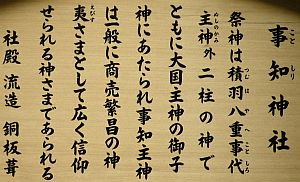 こと しり
事知神社
祭神は積羽八重事代
ぬしのかみ
主神外 二柱の神で
ともに大国主神の御子
神にあたられ事知主神
は一般に商売繁昌の神
えびす
夷さまとして広く信仰
せられる神さまであられる
社殿 流造 銅板葺